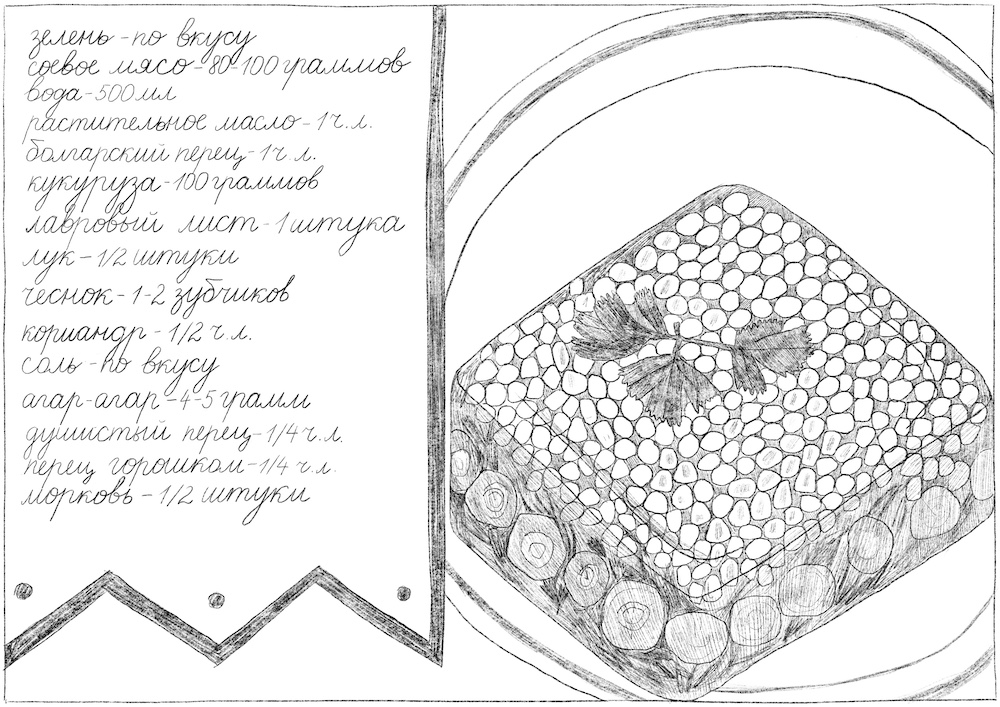 зелень - по вкусу
соевое мясо - 80-100 граммов
вода - 500 мл
растительное масло - 1 ч. л.
болгарский перец - 1 ч. л.
кукуруза - 100 граммов
лавровый лист - 1 штука
лук - 1/2 штуки
чеснок - 1-2 зубчиков
кориандр - 1/2 ч. л.
соль - по вкусу
агар-агар - 4-5 грамм
душистый перец - 1/4 ч. л.
перец горошком - 1/4 ч. л.
морковь - 1/2 штуки